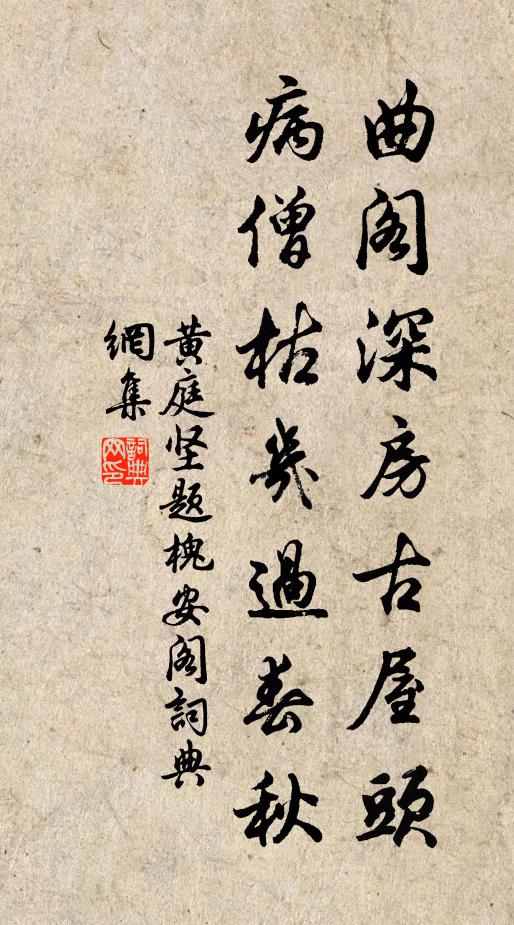 曲阁深房古屋頭
病僧枯几過春秋
黄庭坚题槐安阁詞典
網集
詞典
网印